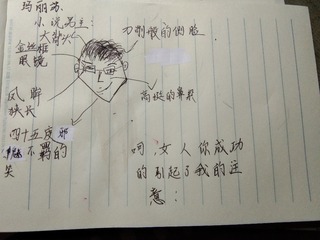 玛丽苏
小说男主:
大背头
刀削般的侧脸
金丝框
眼镜
凤眸
狭长
高挺的鼻梁
四十五度邪
魅不羁的
笑
呵,女人你成功
的引起了我的注
意: